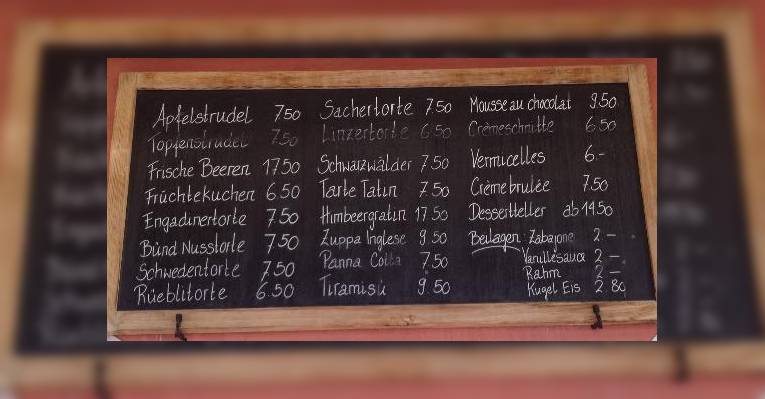 Apfelstrudel 7.50
Topfenstrudel 7.50
Frische Beeren 17.50
Früchtekuchen 6.50
Engadinertorte 7.50
Bünd Nusstorte 7.50
Schwedentorte 7.50
Rüeblitorte 6.50
Sachertorte 7.50
Linzertorte 6.50
Schwarzwälder 7.50
Tarte Tatin 7.50
Himbeergratin 17.50
Zuppa Inglese 9.50
Panna Cotta 7.50
Tiramisú 9.50
Mousse au chocolat 9.50
Crèmeschnitte 6.50
Vermicelles 6.-
Crème brulée 7.50
Dessertteller ab 14.50
Beilagen: Zabajone 2.-
Vanillesauce 2.-
Rahm 2.-
Kugel Eis 2.80